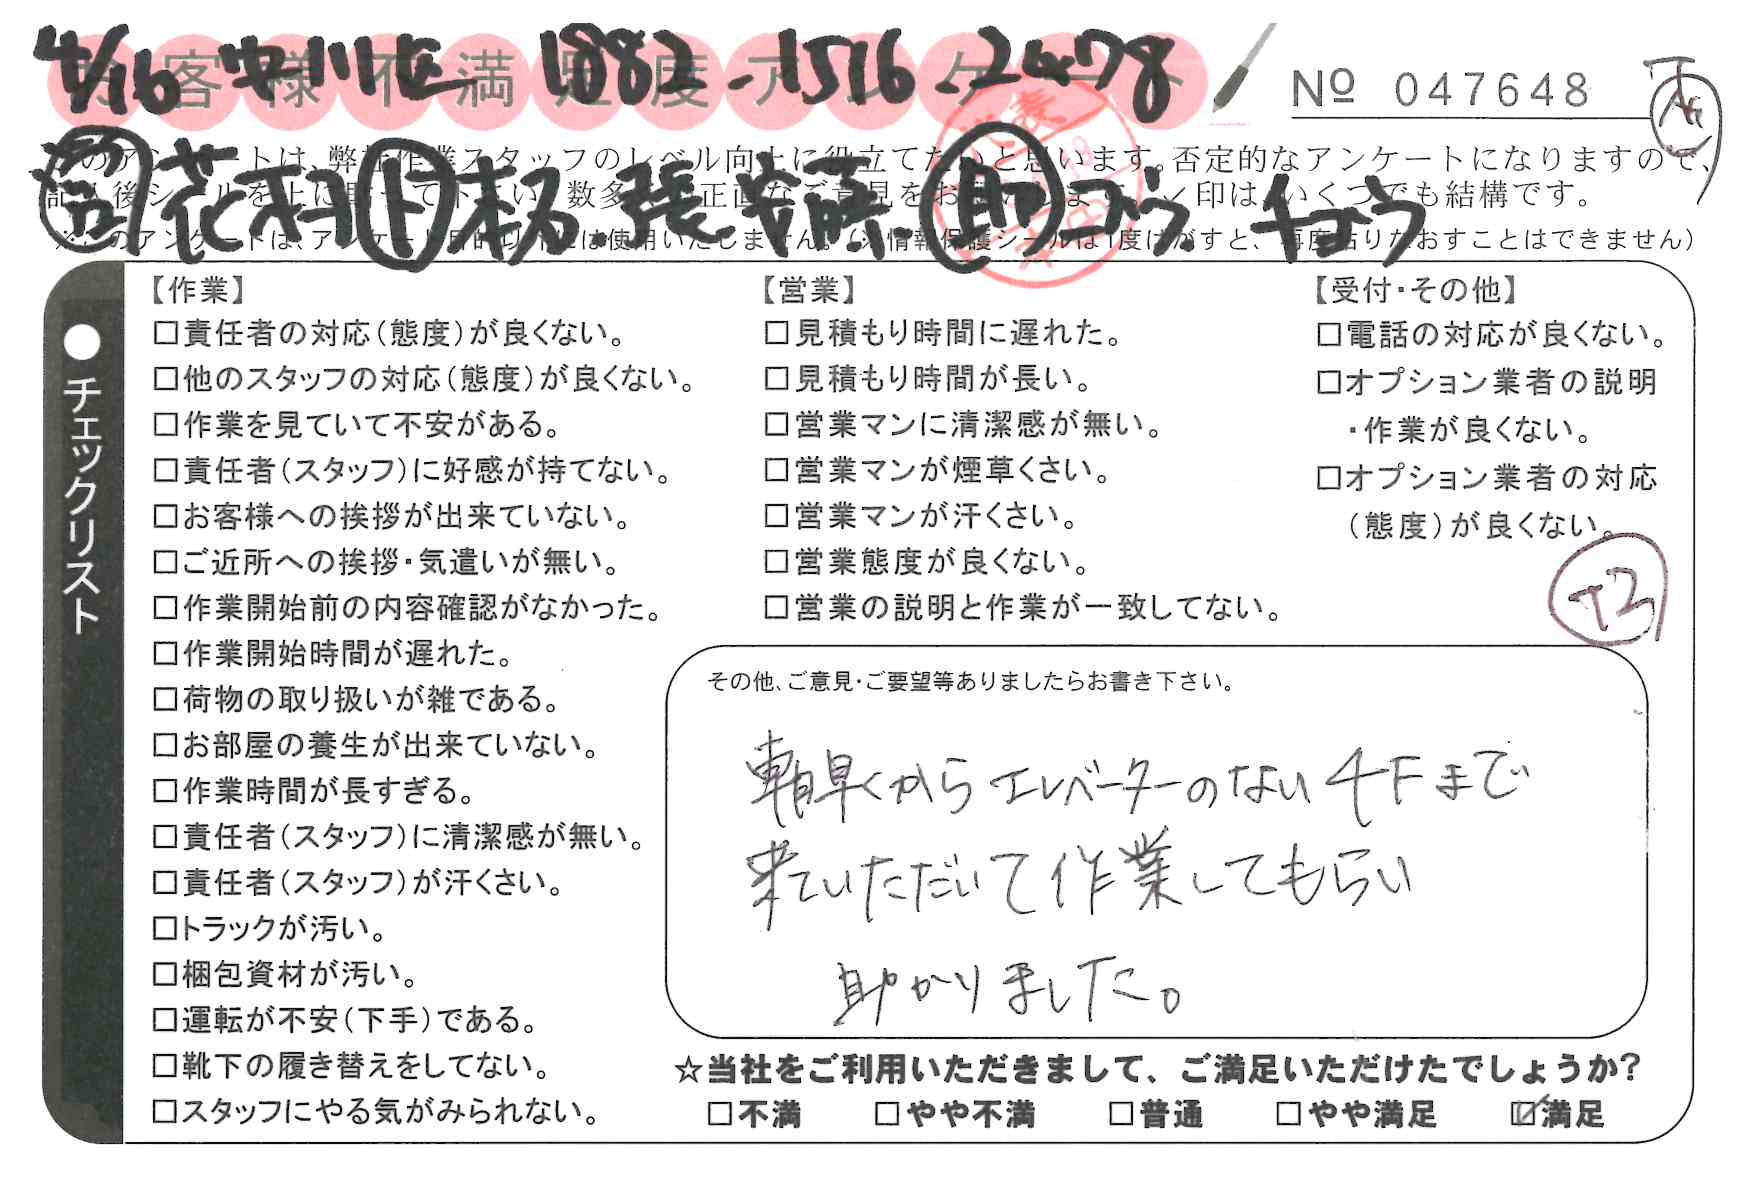 4/16 1882-1516-2478
お客様不満足度アンケート
Nº 047648
このアンケートは、弊社作業スタッフのレベル向上に役立てたいと思います。否定的なアンケートになりますので、
記入後シールを上に貼って下さい。数多くの正直なご意見をお願いします。✓印は、いくつでも結構です。
※このアンケートは、アンケート目的以外には使用いたしません。(※情報保護シールは1度はがすと、再度貼りなおすことはできません)
●チェックリスト
【作業】
□責任者の対応(態度)が良くない。
□他のスタッフの対応(態度)が良くない。
□作業を見ていて不安がある。
□責任者(スタッフ)に好感が持てない。
□お客様への挨拶が出来ていない。
□ご近所への挨拶・気遣いが無い。
□作業開始前の内容確認がなかった。
□作業開始時間が遅れた。
□荷物の取り扱いが雑である。
□お部屋の養生が出来ていない。
□作業時間が長すぎる。
□責任者(スタッフ)に清潔感が無い。
□責任者(スタッフ)が汗くさい。
□トラックが汚い。
□梱包資材が汚い。
□運転が不安(下手)である。
□靴下の履き替えをしてない。
□スタッフにやる気がみられない。
【営業】
□見積もり時間に遅れた。
□見積もり時間が長い。
□営業マンに清潔感が無い。
□営業マンが煙草くさい。
□営業マンが汗くさい。
□営業態度が良くない。
□営業の説明と作業が一致してない。
【受付・その他】
□電話の対応が良くない。
□オプション業者の説明
・作業が良くない。
□オプション業者の対応
(態度)が良くない。
その他、ご意見・ご要望等ありましたらお書き下さい。
朝早くからエレベーターのない4Fまで
来ていただいて作業してもらい
助かりました。
☆当社をご利用いただきまして、ご満足いただけたでしょうか?
□不満 □やや不満 □普通 □やや満足 ☑満足